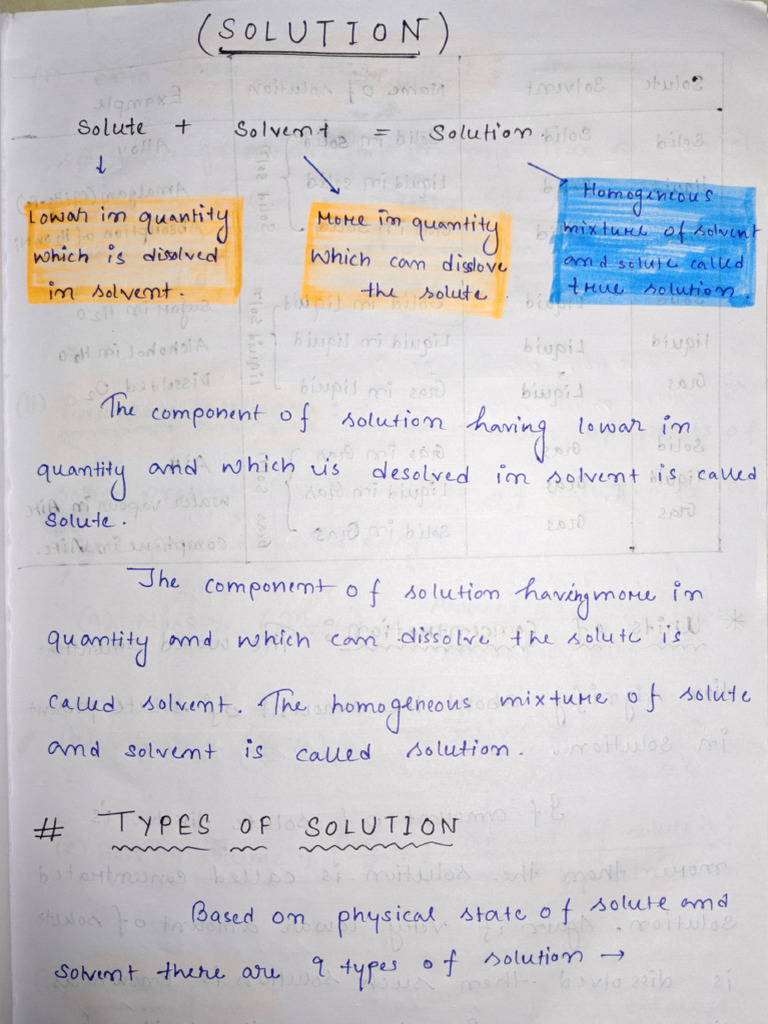 (SOLUTION)
Solute + Solvent = Solution.
Lowar in quantity
which is dissolved
in solvent.
More in quantity
which can disslove
the solute
Homogeneous
mixture of solvent
and solute called
true solution.
The component of solution having lowar in
quantity and which is desolved in solvent is called
solute.
The component of solution having more in
quantity and which can dissolve the solute is
called solvent. The homogeneous mixture of solute
and solvent is called solution.
# TYPES OF SOLUTION
Based on physical state of solute and
solvent there are 9 types of solution →